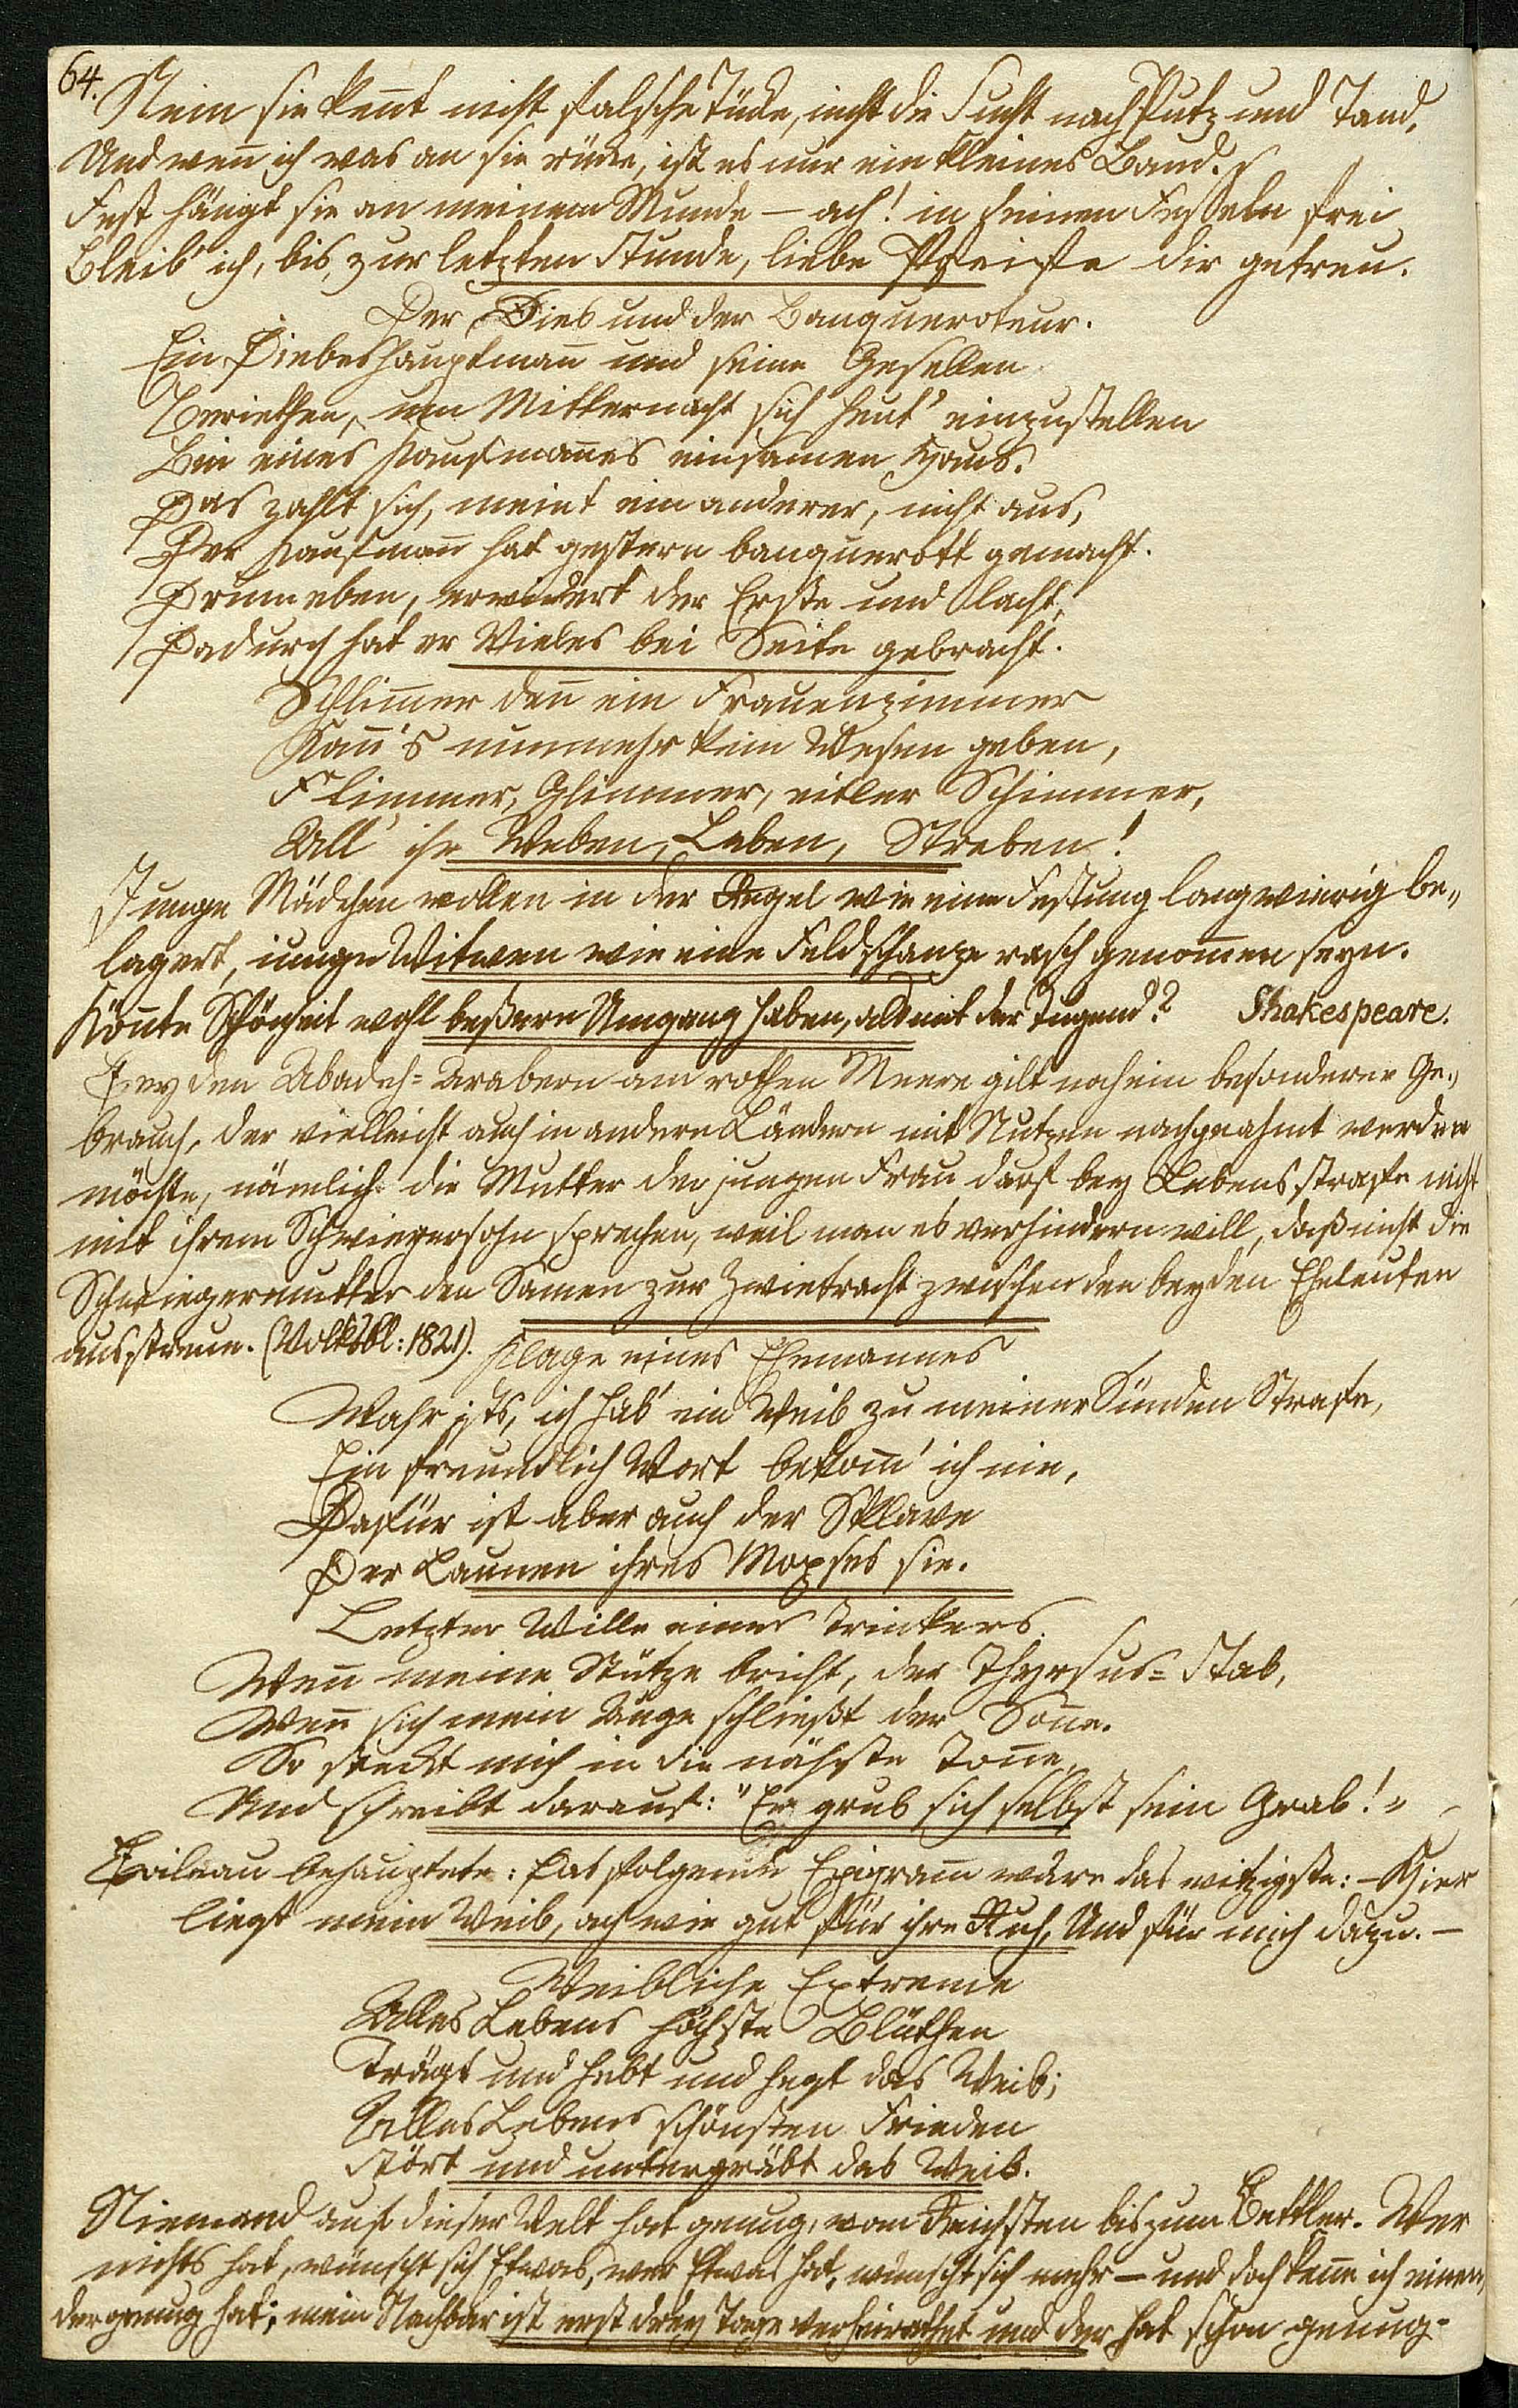 64.
Nein sie keñt nicht falsche Tücke, nicht die Sucht nach Putz und Tand,
Und weñ ich was an sie rücke, ist es nur ein kleines Band.
Fest hängt sie an meinem Munde – ach! in seinen Fesseln frei
Bleib' ich, bis zur letzten Stunde, liebe Pfeife dir getreu.
Der Dieb und der Banqueroteur.
Ein Diebeshauptmañ und seine Gesellen
Beriethen, um Mitternacht sich heut' einzustellen
Bei eines Kaufmañes einsamen Haus.
Das zahlt sich, meint ein anderer, nicht aus,
Der Kaufmañ hat gestern banquerott gemacht.
Drum eben, erwidert der Erste und lacht,
Dadurch hat er Vieles bei Seite gebracht.
Schlim̃er deñ ein Frauenzimmer
Kañ's nunmehr kein Wesen geben,
Flimmer, Glimmer, eitler Schimmer,
All' ihr Weben, Leben, Streben!
Junge Mädchen wollen in der Regel wie eine Festung langwierig be„
lagert, junge Witwen wie eine Feldschanze rasch genom̃en seyn.
Köñte Schönheit wohl beßern Umgang haben, als mit der Tugend? Shakespeare.
Bey den Abadeh=Arabern am rothen Meere gilt noch ein besonderer Ge„
brauch, der vielleicht auch in andern Ländern mit Nutzen nachgeahmt werden
möchte, nämlich die Mutter der jungen Frau darf bey Lebensstrafe nicht
mit ihrem Schwiegersohn sprechen, weil man es verhindern will, daß nicht die
Schwiegermutter den Samen zur Zwietracht zwischen den beyden Eheleuten
ausstreue. (Volksbl: 1821).
Klage eines Ehemannes
Wahr ists, ich hab' ein Weib zu meiner Sünden Strafe,
Ein freundlich Wort bekom̃' ich nie,
Dafür ist aber auch der Sklave
Der Launen ihres Mopses sie.
Letzter Wille eines Trinkers.
Weñ meine Stütze bricht, der Thyrsus=Stab,
Weñ sich mein Auge schließt der Soñe.
So steckt mich in die nächste Toñe,
Und schreibt darauf: "Er grub sich selbst sein Grab!"
Boileau behauptete: Das folgende Epigram̃ wäre das witzigste: – Hier
liegt mein Weib, ach wie gut für ihre Ruh, Und für mich dazu. –
Weibliche Extreme
Alles Lebens höchste Blüthen
Trägt und hebt und hegt das Weib;
Alles Lebens schönsten Frieden
Stört und untergräbt das Weib.
Niemand auf dieser Welt hat genug, vom Reichsten bis zum Bettler. Wer
nichts hat, wünscht sich Etwas, wer Etwas hat, wünscht sich mehr – und doch keñe ich einen,
der genug hat; mein Nachbar ist erst drey Tage verheirathet und der hat schon genug.